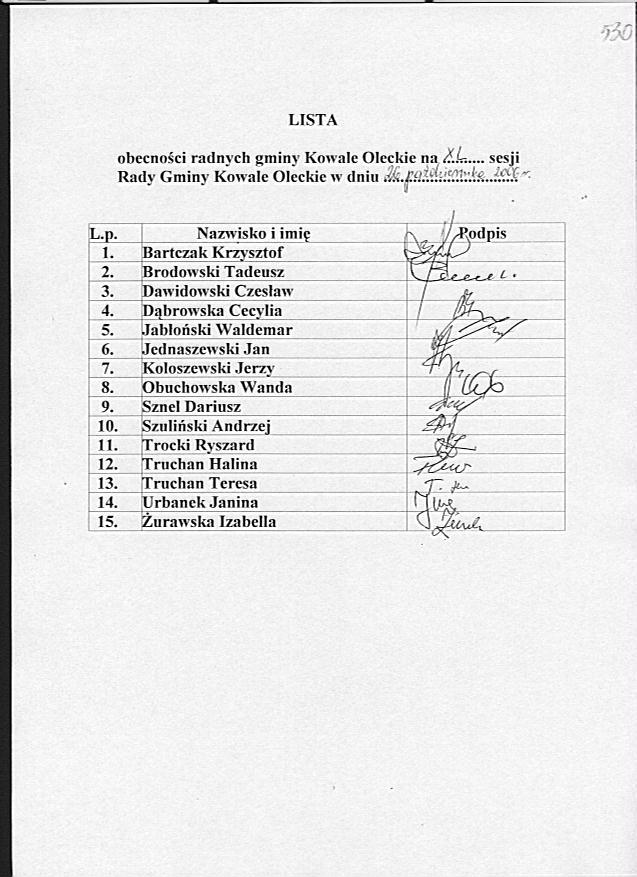 530
LISTA
obecności radnych gminy Kowale Oleckie na XL sesji
Rady Gminy Kowale Oleckie w dniu 26 października 2006 r.
L.p. Nazwisko i imię Podpis
1. Bartczak Krzysztof
2. Brodowski Tadeusz
3. Dawidowski Czesław
4. Dąbrowska Cecylia
5. Jabłoński Waldemar
6. Jednaszewski Jan
7. Koloszewski Jerzy
8. Obuchowska Wanda
9. Sznel Dariusz
10. Szuliński Andrzej
11. Trocki Ryszard
12. Truchan Halina
13. Truchan Teresa
14. Urbanek Janina
15. Żurawska Izabella